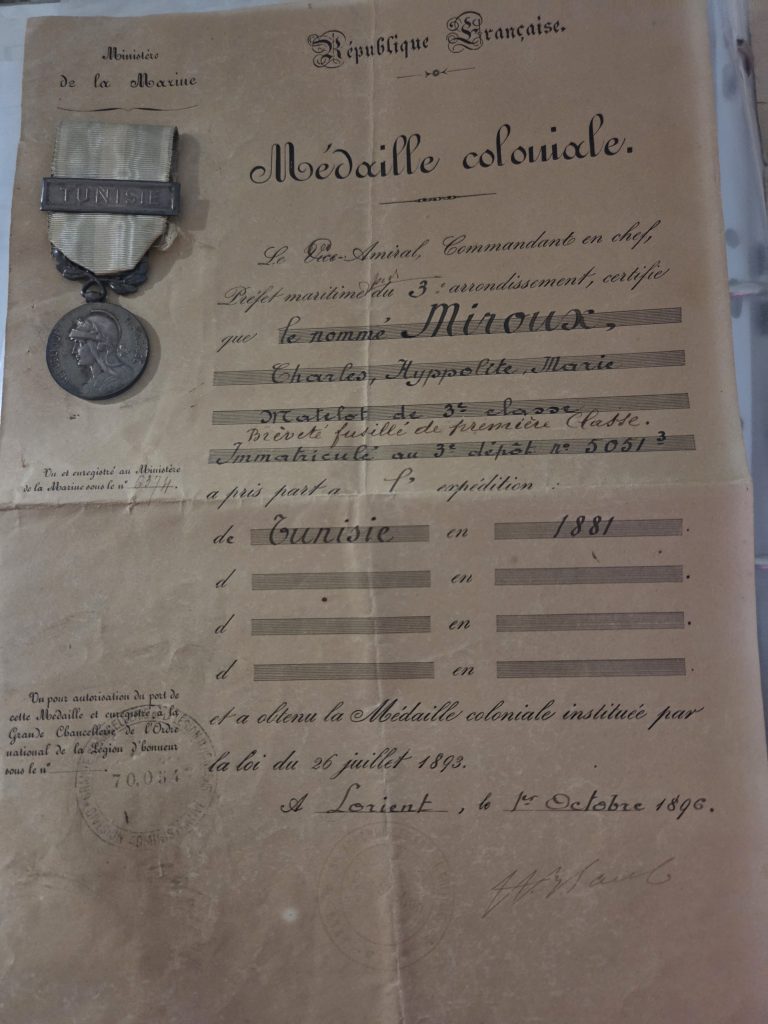 République Française.
Ministère
de la Marine
Médaille coloniale.
TUNISIE
Le Vice-Amiral, Commandant en chef,
Préfet maritime du 3e arrondissement, certifie
que le nommé Miroux,
Charles, Hyppolite, Marie
Matelot de 3e classe
Brèveté fusillé de première Classe.
Immatriculé au 3e dépôt no 5051 3
Vu et enregistré au Ministère
de la Marine sous le no
a pris part a l' expédition :
de Tunisie en 1881.
d en
d en .
d en
Vu pour autorisation du port de
cette Médaille et enregistré à la
Grande Chancellerie de l'Ordre
national de la Légion d'honneur
sous le no 70.054
et a obtenu la Médaille coloniale instituée par
la loi du 26 juillet 1893.
A Lorient, le 1er Octobre 1896.